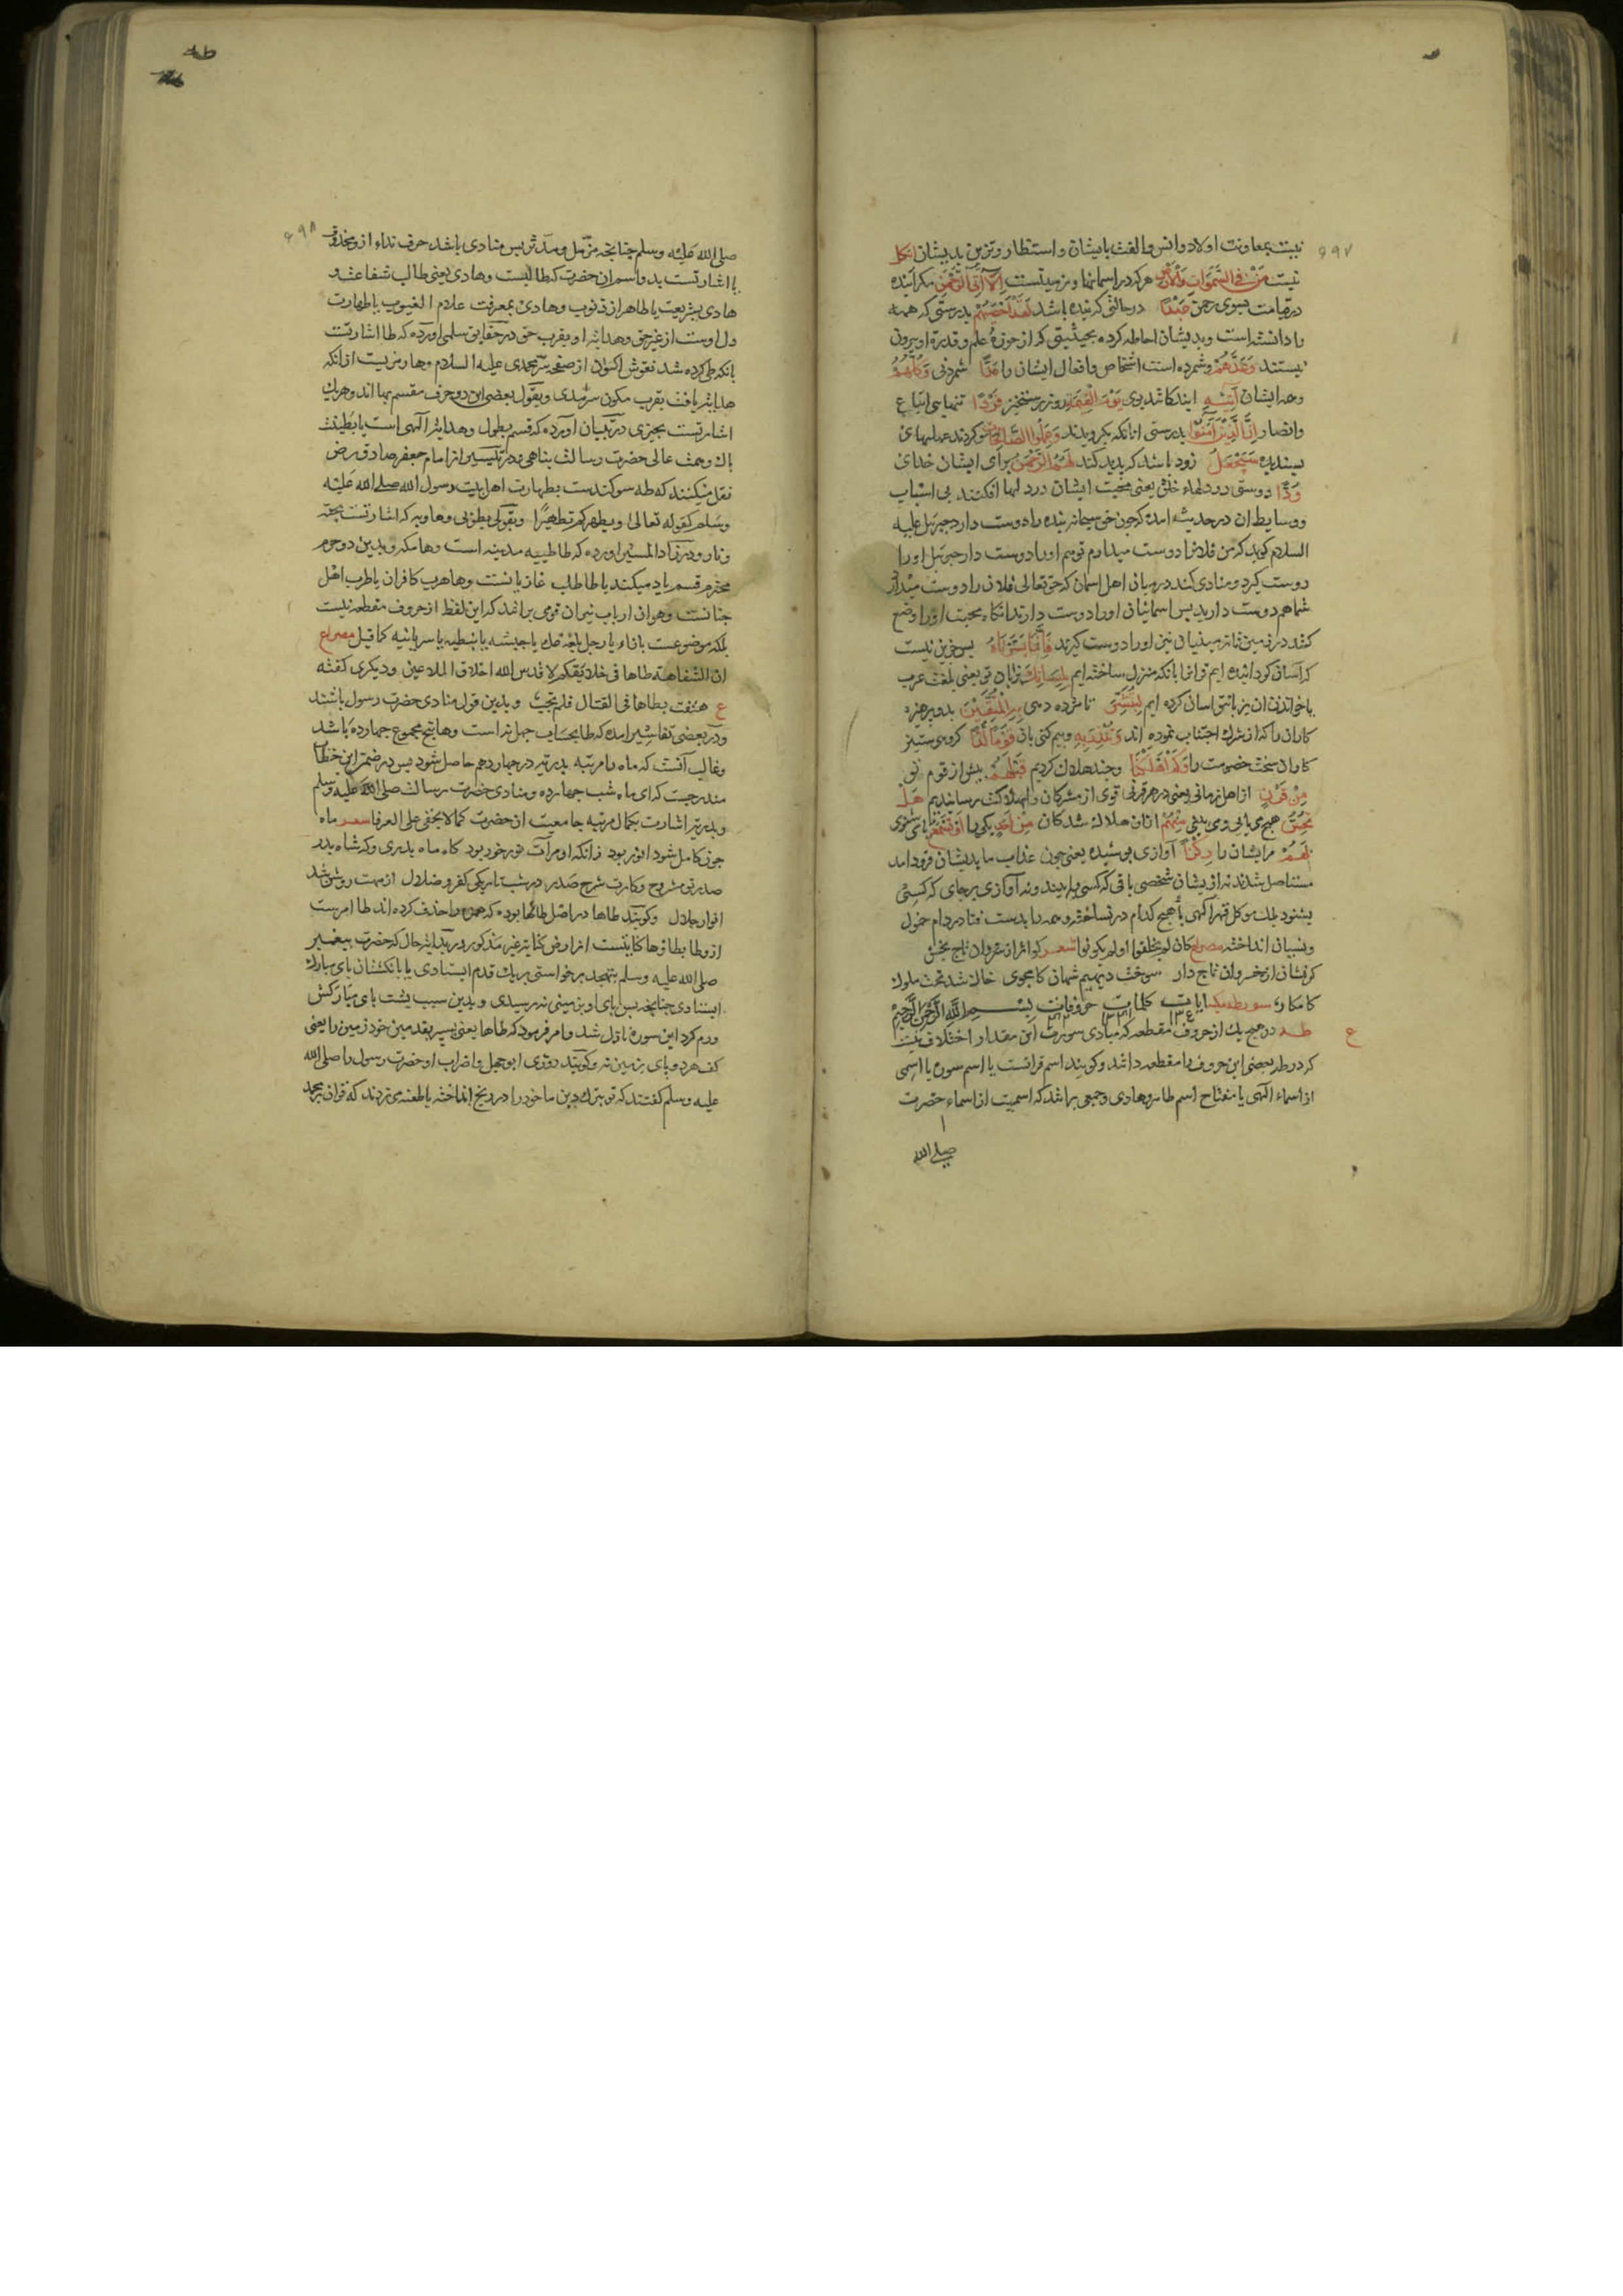 ۶۹۷
نیست بمعاونت اولاد وانس والفت بایشان واستظهار وتزین بدیشان ان کل
نیست من فی السموات والارض هرکه در اسمانها وزمینست الا اتی الرحمن مکر آینده
در قیامت بسوی رحمن عبدا در حالتی که بنده باشد لقد احصیهم بدرستی که همه
را دانسته است وبدیشان احاطه کرده بحیثیتی که از حوزهٔ علم وقدرة او بیرون
نیستند وعدهم وشمرده است اشخاص وافعال ایشان را عدا شمردنی وکلهم
وهمه ایشان آتیه ایندکانند بوی یوم القیمة روز رستخیز فردا تنها بی اتباع
وانصار ان الذین آمنوا بدرستی انانکه بکرویدند وعملوا الصالحات وکردند عملهای
پسندیده سیجعل زود باشد که پدید کند لهم الرحمن برای ایشان خدای
ودا دوستی در دلهاء خلق یعنی محبت ایشان در دلها افکند بی اسباب
ووسایط ان در حدیث امده که چون حق سبحانه بنده را دوست دارد جبرئیل علیه
السلام کوید که من فلانرا دوست میدارم تو هم اورا دوست دار جبرئیل اورا
دوست کیرد ومنادی کند در میان اهل اسمان که حق تعالی فلان را دوست میدارد
شما هم دوست دارید پس اسمانیان اورا دوست دارند انکاه محبت اورا وضع
کند در زمین تا زمینیان نیز اورا دوست کیرند فانما یسرناه پس جز این نیست
که اسان کردانیده ایم قرانرا بانکه منزل ساخته ایم بلسانک بزبان تو یعنی بلغت عرب
یا خواندن ان بر زبانت اسان کرده ایم لتبشر تا مژده دهی به المتقین بدو پرهیزه
کاران را که از شرک اجتناب نموده اند وتنذر به وبیم کنی بان قوما لدا کروهی ستیز
کاران سخت خصومت را وکم اهلکنا وچند هلاک کردیم قبلهم پیش از قوم تو
من قرن از اهل زمانی یعنی در هر قرنی قوی از مشرکان را بهلاکت رسانیدیم هل
تحس هیچ می یابی ومی بینی منهم ازان هلاک شدکان من احد یکی را او تسمع یا می شنوی
لهم مر ایشان را رکزا آوازی پوشیده یعنی چون عذاب ما بدیشان فرود امد
مستاصل شدند نه از یشان شخصی باقی که کسی بیند ونه آوازی بر جای که کسی
بشنود ملک موکل قهر الهی با هیچ کدام در نساخته وهمه را بدست فنا در دام خمول
ونسیان انداخته مصراع کان لم یخلقوا اولم یکونوا شعر کو اثر از سروران تاج بخش
کو نشان از خسروان تاج دار سوخت دیهیم شهان کامجوی خاک شد تخت ملوک
کامکار سورة طه مکیه ایات کلمات حروفات بسم الله الرحمن الرحیم
ع
طه در هیچ یک از حروف مقطعه که مبادی سورت این مقدار اختلاف نیست
که در طه بعضی این حروف را مقطعه داشته وکویند اسم قرانست یا اسم سوره یا اسمی
از اسماء الهی یا مفتاح اسم طاهر وهادی وجمعی برانند که اسمیت از اسماء حضرت
صلی الله
طه
۶۹۸
صلی الله علیه وسلم چنانچه مزمل ومدثر پس منادی باشد حرف نداء ازو محذوف
یا اشارتست بدو اسم ان حضرت که طالبست وهادی یعنی طالب شفاعت و
هادی بشریعت یا طاهر از ذنوب وهادی بمعرفت علام الغیوب یا طهارت
دل اوست از غیر حق وهدایت او بقرب حق در حقایق سلمی اورده که طا اشارتست
بانکه طی کرده شد نقوش اکوان از صفحه سر محمدی علیه السلام وها رمزیست از انکه
هدایت یافت بقرب مکون سرمدی وبقول بعضی این دو حرف مقسم بها اند وهر یک
اشارتست بچیزی در تبیان اورده که قسم بطول وهدایت الهی است یا بطینت
پاک وهمت عالی حضرت رسالت پناهی ودر تیسیر از امام جعفر صادق رض
نقل میکنند که طه سوکندست بطهارت اهل بیت رسول الله صلی الله علیه
وسلم کقوله تعالی ویطهرکم تطهیرا وبقولی بطوبی وهاویه که اشارتست بجنت
ونار ودر زاد المسیر اورده که طا طیبه مدینه است وها مکه وبدین دو حرم
محترم قسم یاد میکند یا طا طلب غازیانست وها هرب کافران یا طرب اهل
جنانست وهوان ارباب نیران قومی برانند که این لفظ از حروف مقطعه نیست
بلکه موضوعست بازاء یا رجل بلغة عک یا حبشه یا نبطیه یا سریانیه کما قیل مصراع
ان السفاهة طاها فی خلائقکم لا قدس الله اخلاق الملاعین ودیکری کفته
ع هتفت بطاها فی القتال فلم یجب وبدین قول منادی حضرت رسول باشند
ودر بعضی تفاسیر امده که طا بحساب جمل نه است وها پنج مجموع چهارده باشد
وغالب آنست که ماه را مرتبه بدریه در چهاردهم حاصل شود پس در ضمن این خطاب
مندرجست که ای ماه شب چهارده ومنادی حضرت رسالت صلی الله علیه وسلم
وبدریه اشارت بکمال مرتبه جامعیت ان حضرت کما لا یخفی علی العرفا شعر ماه
چون کامل شود انور بود زانکه او مرآت نور خور بود کاه ماه بدری وکه شاه بدر
صدر تو مشروح وکارت شرح صدر در شب تاریکی کفر وضلال از مهت روشن شد
انوار جلال وکویند طاها در اصل طاها بوده که همزه را حذف کرده اند طا امرست
از وطا یطا وها کنایتست از ارض کنایه غیر مذکور در بدایت حال که حضرت پیغمبر
صلی الله علیه وسلم بتهجد برخواستی بر یک قدم ایستادی یا بانکشتان پای مبارک
ایستادی چنانچه پس پای او بزمین نرسیدی وبدین سبب پشت پای مبارکش
ورم کرد این سوره نازل شد وامر فرمود که طاها یعنی بسپر بقدمین خود زمین را یعنی
کف هر دو پای بزمین نه وکویند روزی ابو جهل واضراب او حضرت رسول را صلی الله
علیه وسلم کفتند که تو بترک دین ما خود را در رنج انداخته یا طعنه می زدند که قران بر محمد